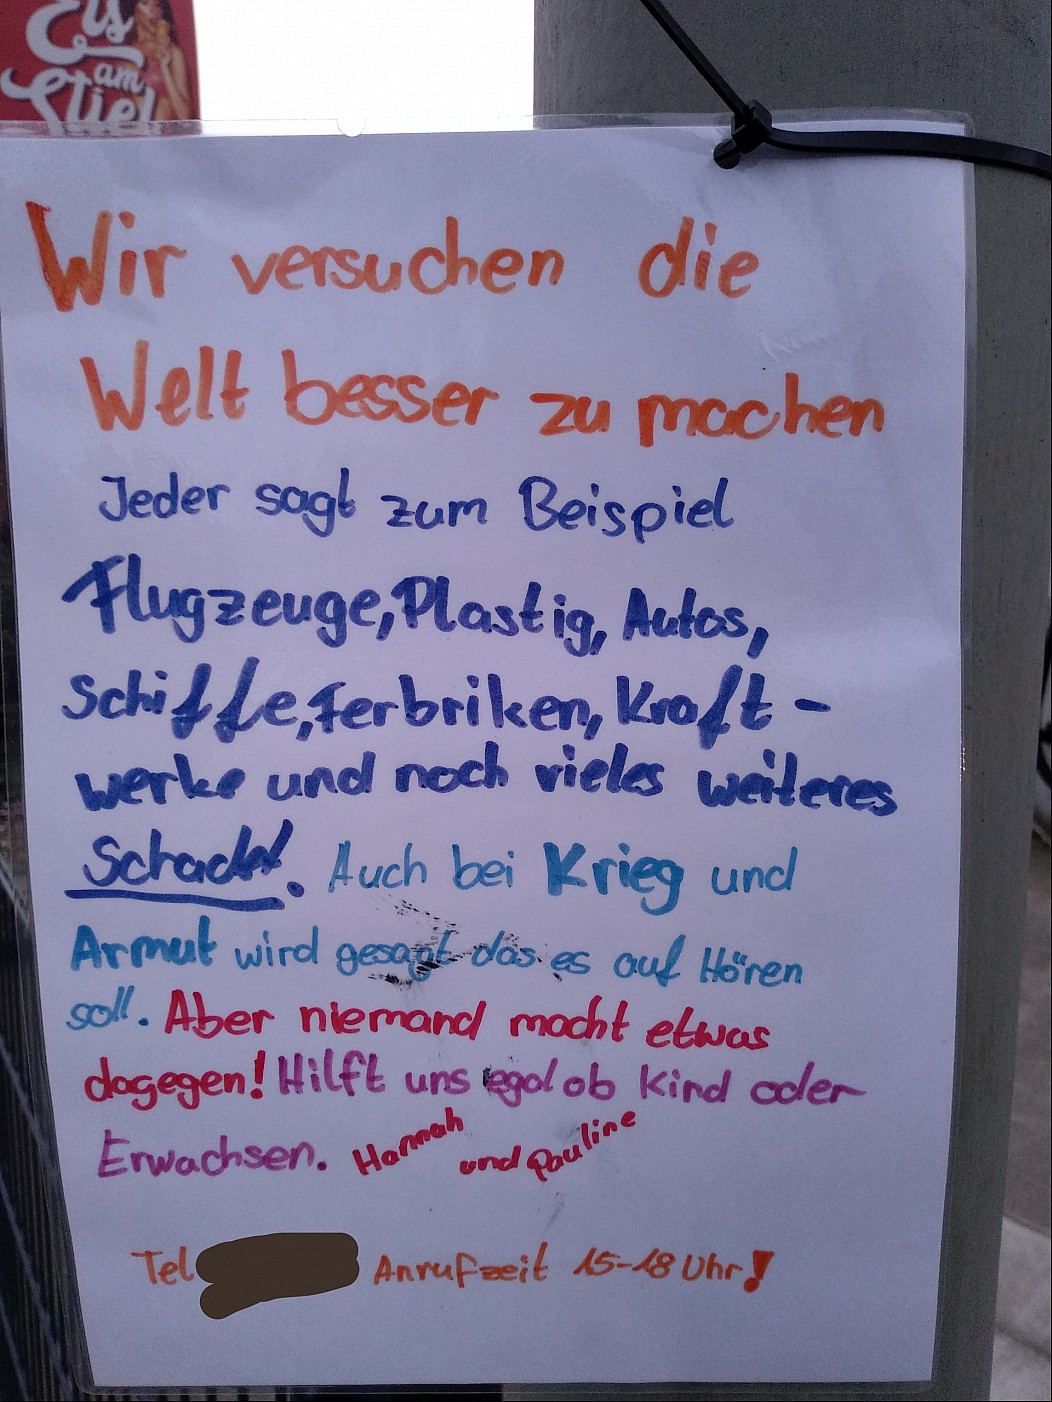 Eis
am
Stiel
Wir versuchen die
Welt besser zu machen
Jeder sagt zum Beispiel
Flugzeuge, Plastig, Autos,
Schiffe, Ferbriken, Kraft-
werke und noch vieles weiteres
Schadet. Auch bei Krieg und
Armut wird gesagt das es auf Hören
soll. Aber niemand macht etwas
dagegen! Hilft uns egal ob Kind oder
Erwachsen. Hannah
und Pauline
Tel Anrufzeit 15-18 Uhr!